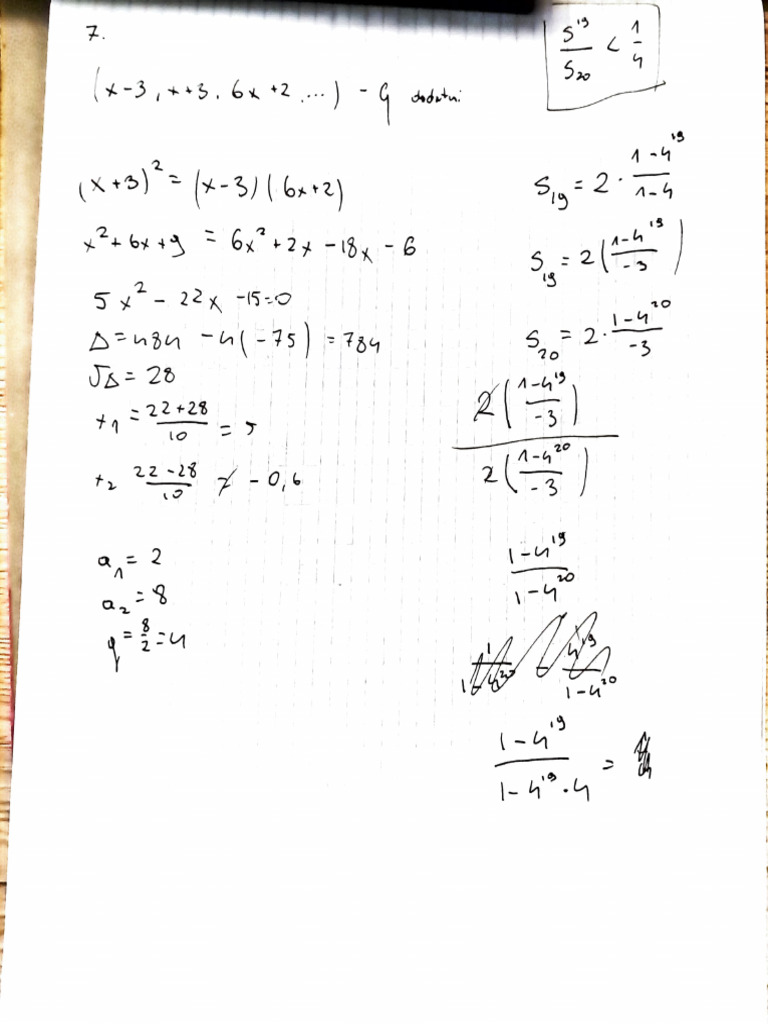 7.
(x-3, x+3, 6x+2, ...) - q dodatni
(x+3)² = (x-3)(6x+2)
x²+6x+9 = 6x²+2x-18x-6
5x²-22x-15=0
Δ=484-4(-75)=784
√Δ=28
x₁ = (22+28)/10 = 5
x₂ (22-28)/10 ≠ -0,6
a₁=2
a₂=8
q=8/2=4
S¹⁹/S₂₀ < 1/4
S₁₉ = 2 · (1-4¹⁹)/(1-4)
S₁₉ = 2((1-4¹⁹)/-3)
S₂₀ = 2 · (1-4²⁰)/-3
2((1-4¹⁹)/-3)
2((1-4²⁰)/-3)
(1-4¹⁹)/(1-4²⁰)
(1-4¹⁹)/(1-4¹⁹·4) =